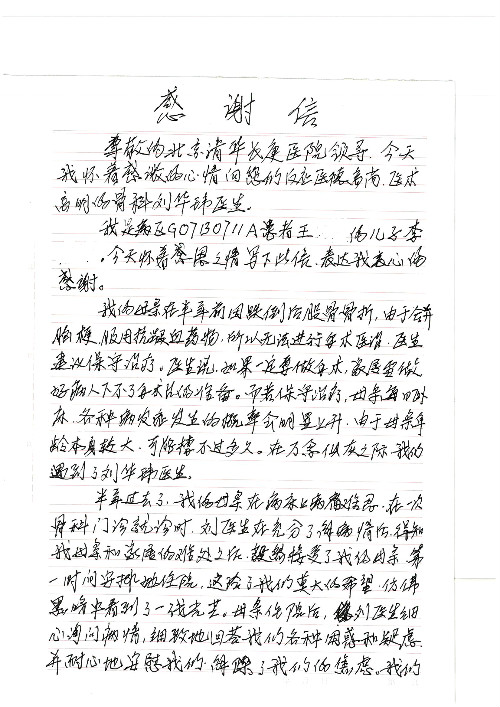 感 谢 信
尊敬的北京清华长庚医院领导，今天
我怀着感激的心情向您的医德高尚、医术
高明的骨科刘华玮医生。
我是病区G07130711A患者王 的儿子李
，今天怀着感恩之情写下此信，表达我衷心的
感谢。
我的母亲在半年前因跌倒后股骨骨折，由于合并
脑梗，服用抗凝血药物，所以无法进行手术医治，医生
建议保守治疗。医生说，如果一定要做手术，家属需做
好病人下不了手术台的准备。可若保守治疗，母亲每日卧
床，各种病发症发生的概率会明显上升，由于母亲年
龄本身较大，可能撑不过多久。在万念俱灰之际，我们
遇到了刘华玮医生。
半年过去了，我的母亲在病床上病痛难忍，在一次
骨科门诊就诊时，刘医生在充分了解病情后，得知
我母亲和家庭的难处之后，毅然接受了我的母亲，第
一时间安排她住院，这给了我们莫大的希望，仿佛
黑暗中看到了一线光芒。母亲住院后，刘医生细
心询问病情，细致地回答我们的各种困惑和疑虑，
并耐心地安慰我们，解除了我们的焦虑。我们